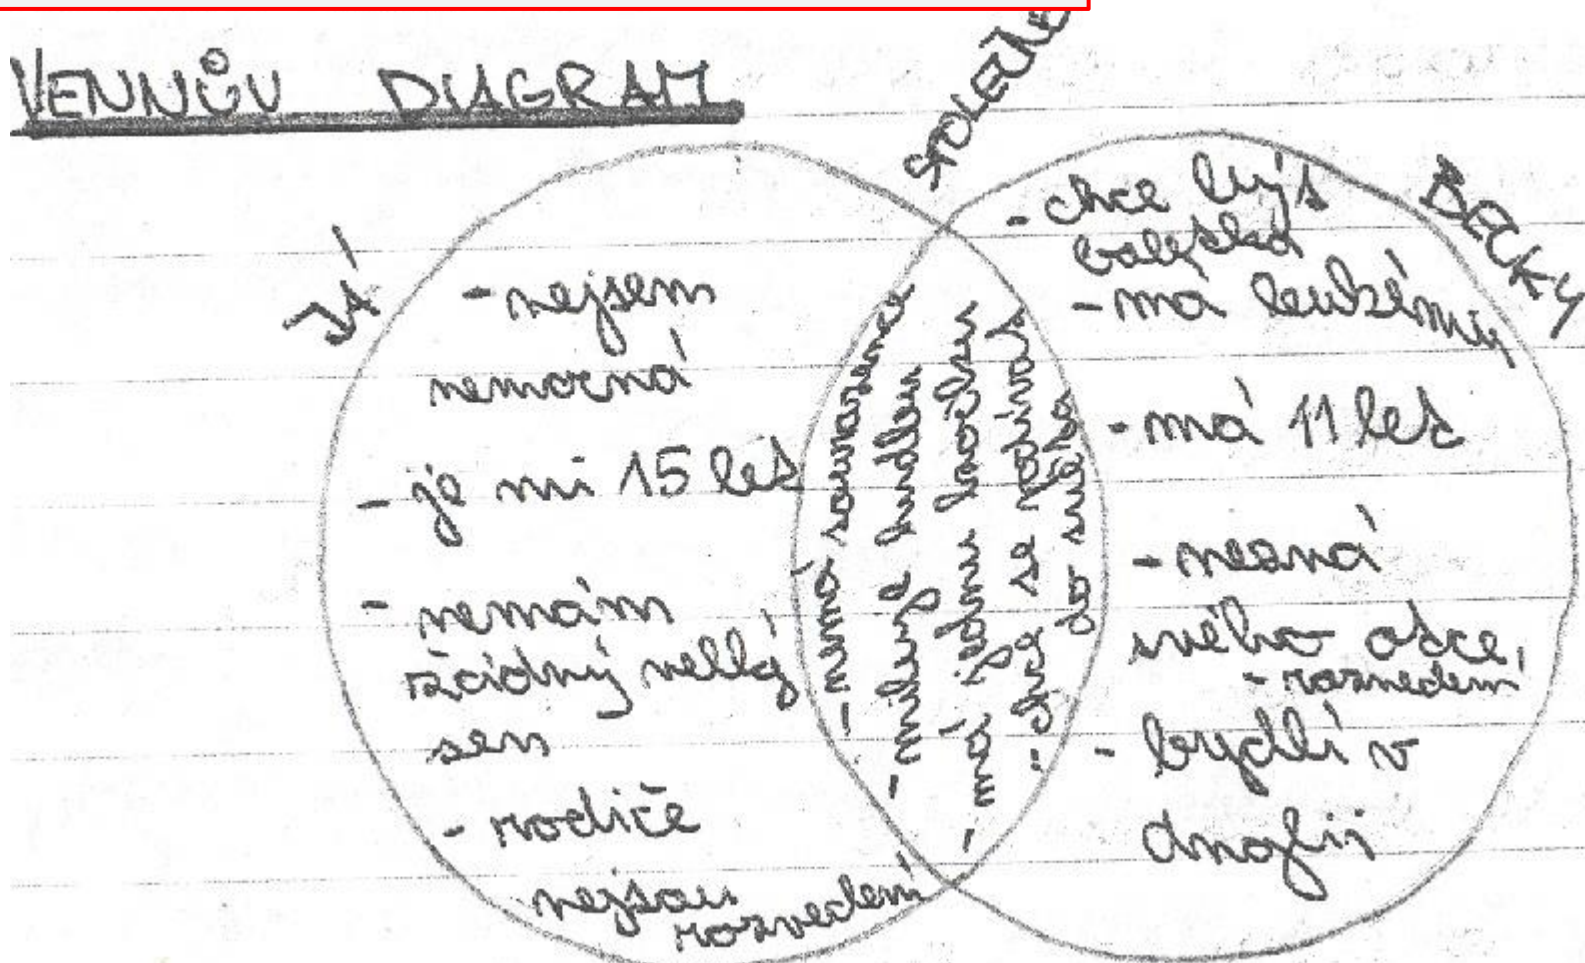 VENNŮV DIAGRAM
SPOLEČNÉ
JÁ
- nejsem
nemocná
- je mi 15 let
- nemám
žádný velký
sen
- rodiče
nejsou
rozvedení
- nemá sourozence
- miluje hudbu
- má jednu kočku
- chce se podívat
do světa
BECKY
- chce být
baletka
- má leukémii
- má 11 let
- nezná
svého otce,
- rozvedení
- bydlí v
Anglii